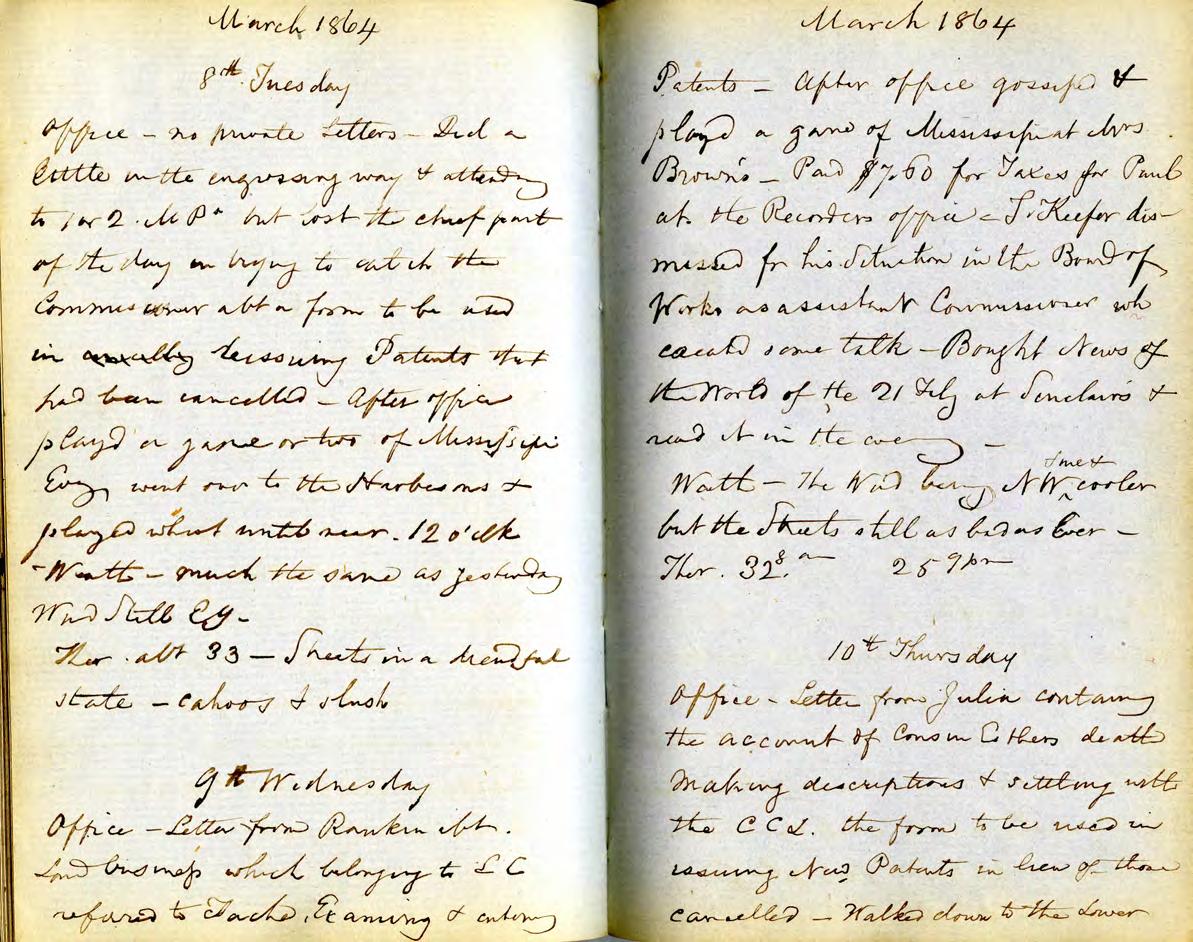 March 1864
8th Tuesday
Office – no private Letters – Did a
little in the engrossing way & attending
to 1 or 2 M P s but lost the chief part
of the day in trying to catch the
Commissioner abt a form to be used
in reissuing Patents that
had been cancelled – After office
playd a game or two of Mississipi
Evg went over to the Harbesons &
played whist until near 12 o'clk
Weath – much the same as yesterday
Wind Still Ely –
Ther. abt 33 – Streets in a dreadful
state – cahoos & slush
9th Wednesday
Office – Letter from Rankin abt.
Land business which belonging to L C
refered to Taché, Examing & entering
March 1864
Patents – After office gossiped &
playd a game of Mississipi at Mrs
Brown's – Paid $7.60 for Taxes for Paul
at the Recorders office – S. Keefer dis-
missed fr his Situation in the Board of
Works as assistant Commissioner wh
caused some talk – Bought News of
the World of the 21 Feby at Sinclair's &
read it in the eveng –
Weath – The Wind being NW somet cooler
but the Streets still as bad as Ever –
Ther. 32 8 am 25 9 pm
10th Thursday
Office – Letter from Julia containing
the account of Cousin Esthers death
Making descriptions & settling with
the C C L. the form to be used in
issuing New Patents in lieu of those
cancelled – Walked down to the Lower